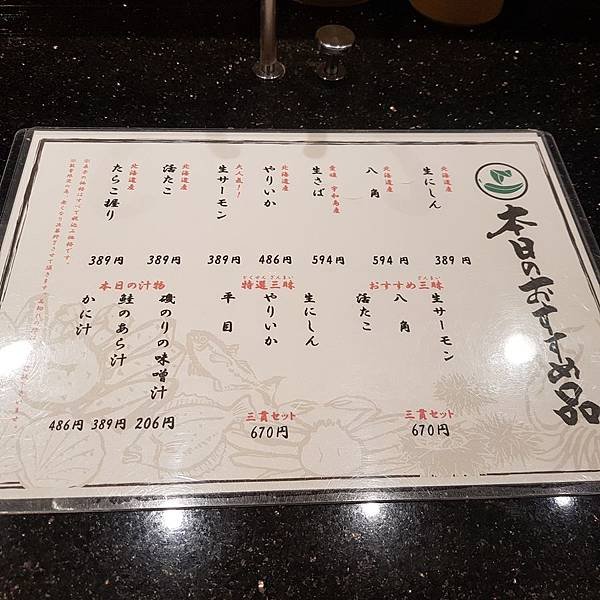 本日のおすすめ品
北海道産
生にしん
389円
北海道産
八角
594円
愛媛 宇和島産
生さば
594円
北海道産
やりいか
486円
大人気!!
生サーモン
389円
北海道産
活たこ
389円
北海道産
たらこ握り
389円
おすすめ三昧
ざんまい
生サーモン
八角
活たこ
三貫セット
670円
特選三昧
とくせんざんまい
生にしん
やりいか
平目
三貫セット
670円
本日の汁物
磯のりの味噌汁
206円
鮭のあら汁
389円
かに汁
486円
※表示の価格はすべて税込み価格です。